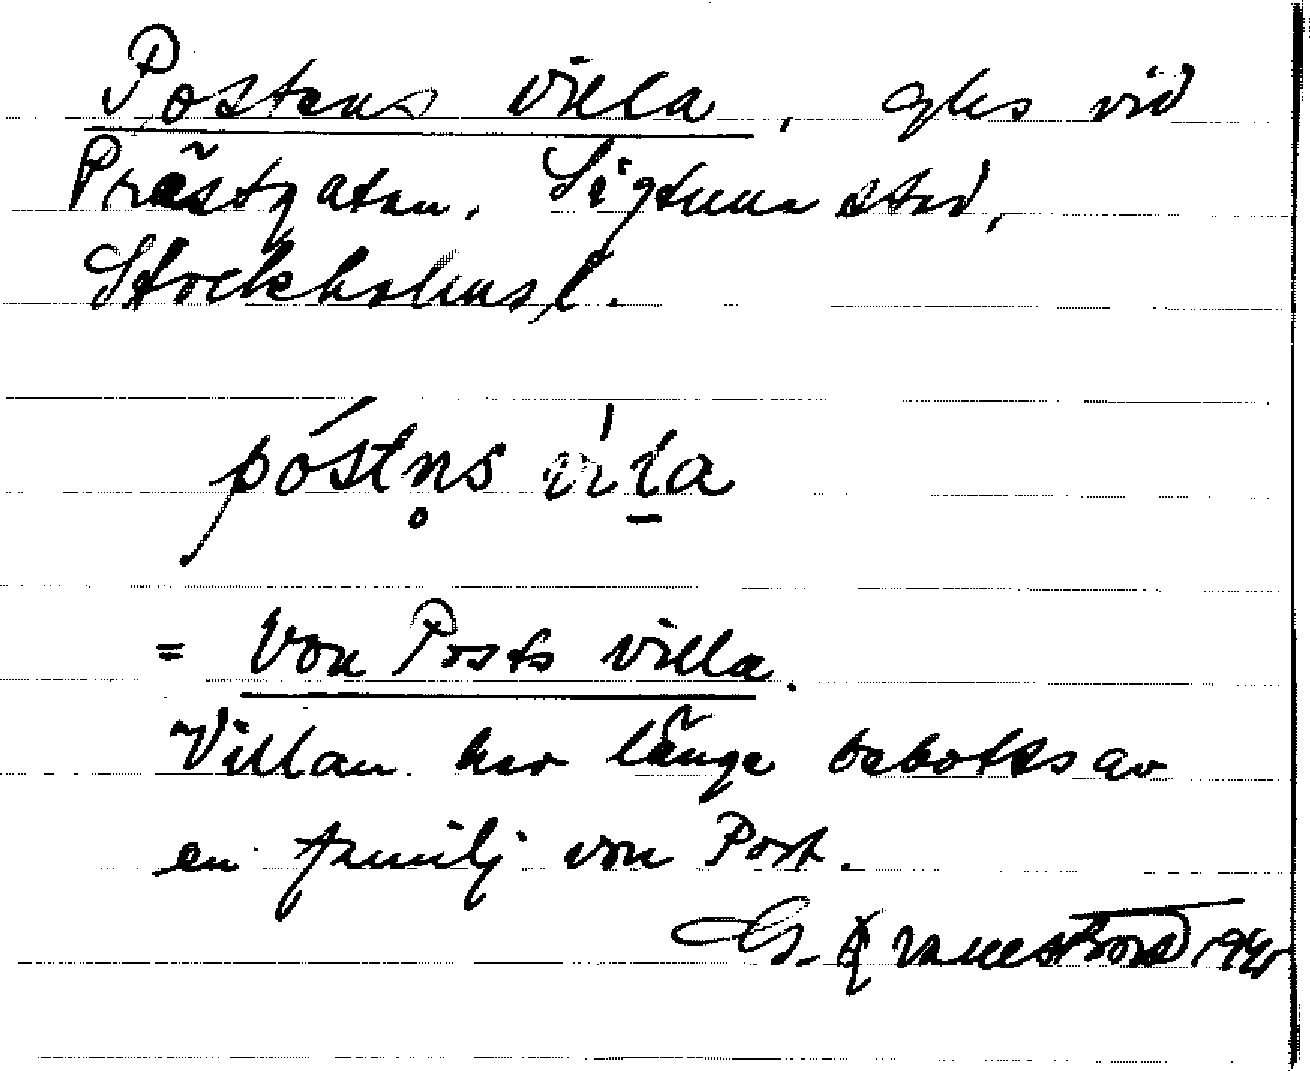 Postens villa, ghs vid
Prästgatan. Sigtuna stad,
Stockholms l.
póstn̥s víḻa
= Von Posts villa.
Villan har länge bebotts av
en familj von Post.
G.